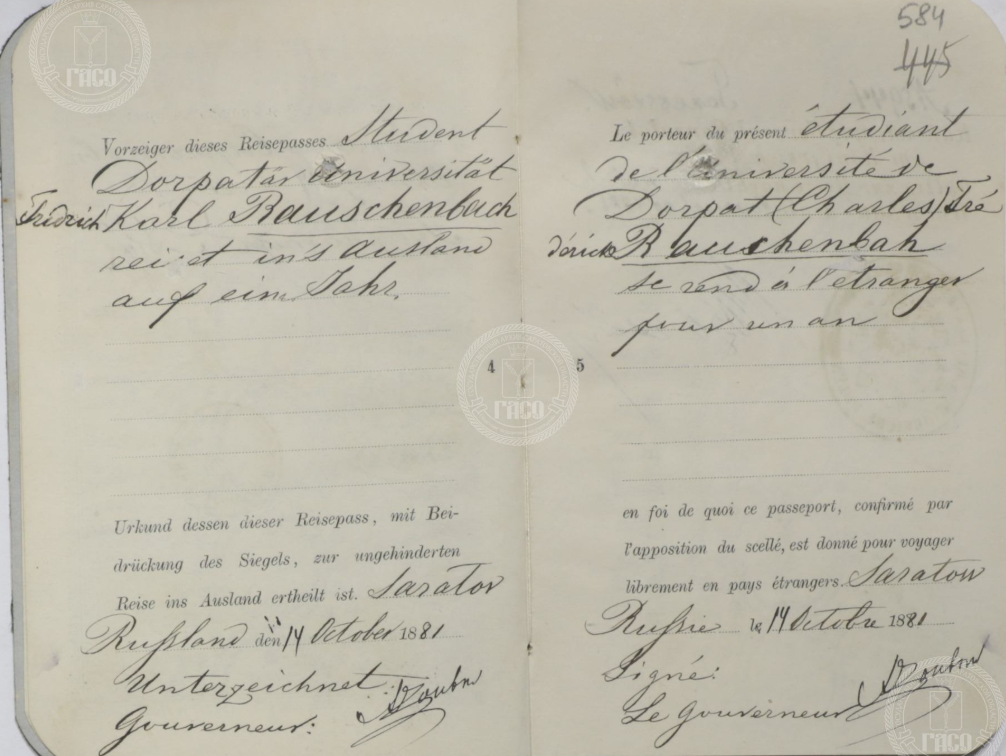 584
445
Vorzeiger dieses Reisepasses Student
Dorpatär Universität
Fridrich Karl Rauschenbach
reist in's Ausland
auf ein Jahr.
4
Urkund dessen dieser Reisepass, mit Bei-
drückung des Siegels, zur ungehinderten
Reise ins Ausland ertheilt ist. Saratov
Russland den 14 October 1881
Unterzeichnet:
Gouverneur:
Le porteur du présent étudiant
de l'Université de
Dorpat (Charles) Fré
dérick Rauschenbah
se rend à l'etranger
pour un an
5
en foi de quoi ce passeport, confirmé par
l'apposition du scellé, est donné pour voyager
librement en pays étrangers. Saratow
Russie le 14 Octobre 1881
Signé:
Le Gouverneur
ГАСО
ГАСО
ГАСО